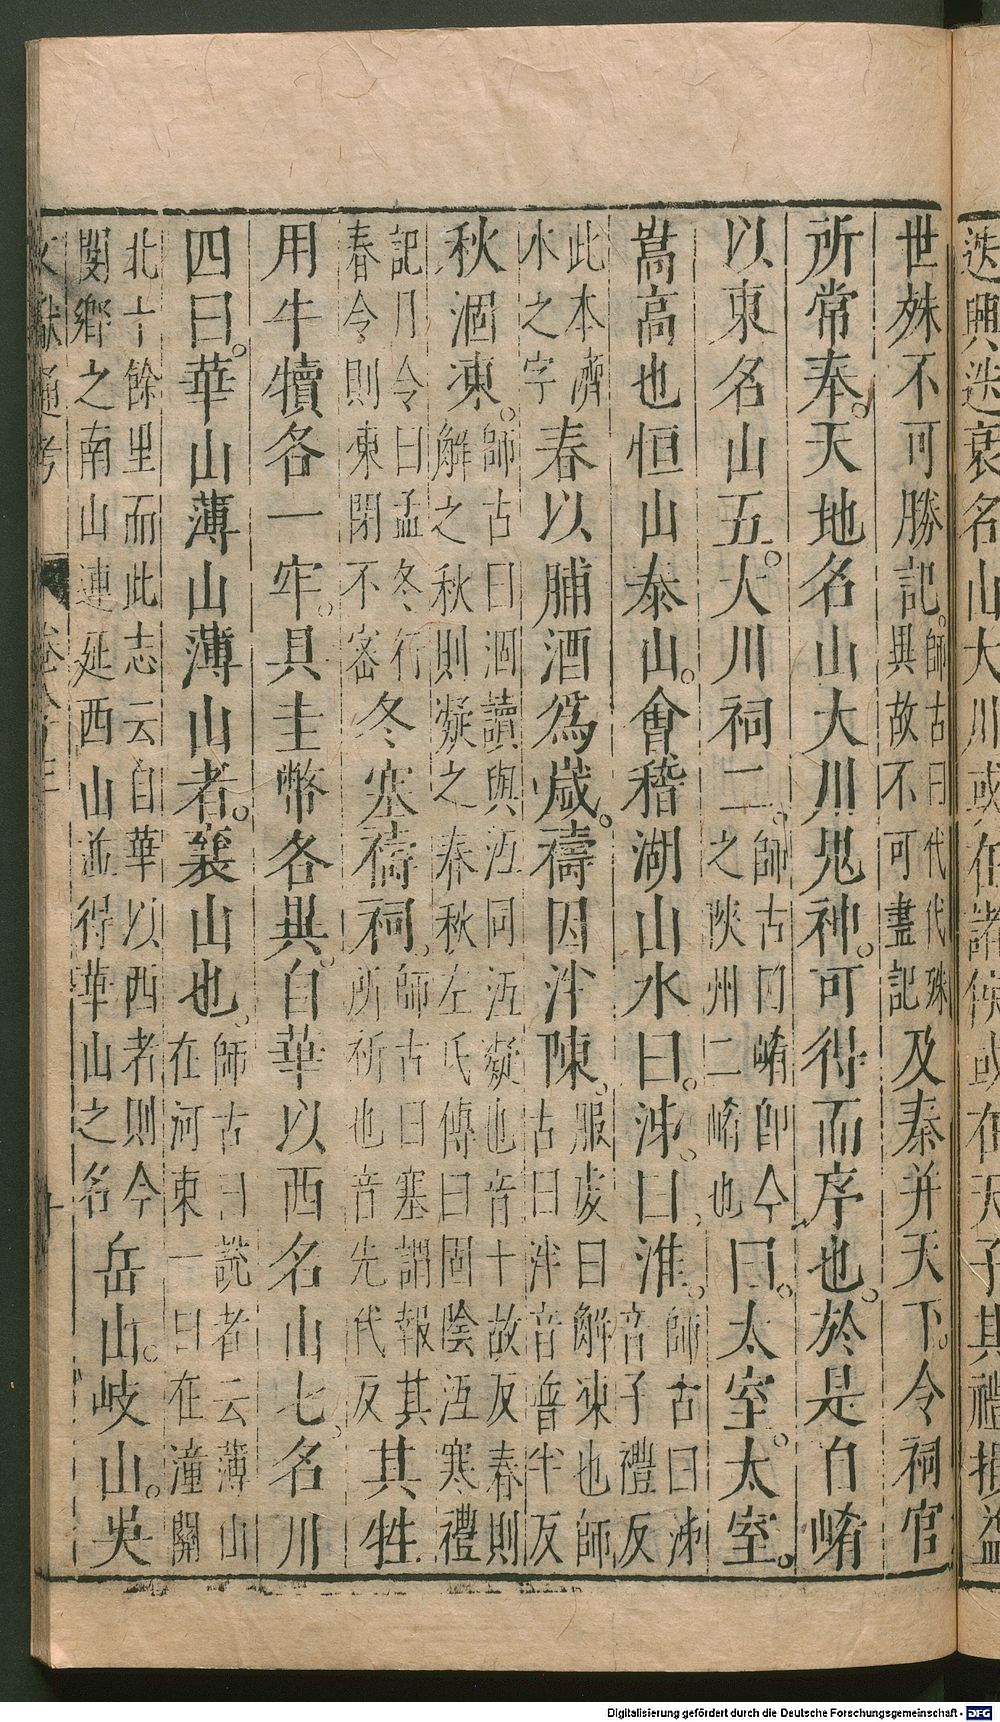 迭興迭衰名山大川或在諸侯或在天子其禮損益
世殊不可勝記。師古曰代代殊異故不可盡記及秦并天下。令祠官
所常奉。天地名山大川鬼神。可得而序也。於是自崤
以東名山五。大川祠二。師古曰崤即今之陜州二崤也曰。太室。太室。
嵩高也恒山泰山。會稽湖山水曰。泲。曰。淮。師古曰泲音子禮反
此本濟水之字春以脯酒爲歲。禱因泮陳。服虔曰解凍也師古曰泮音普半反
秋涸凍。師古曰涸讀與沍同沍凝也音十故反春則解之秋則凝之春秋左氏傳曰固陰沍寒禮
記月令曰孟冬行春令則凍閉不密冬塞禱祠。師古曰塞謂報其所祈也音先代反其牲
用牛犢各一牢。具圭幣各異。自華以西名山七。名川
四曰。華山薄山薄山者。襄山也。師古曰説者云薄山在河東一曰在潼關
北十餘里而此志云自華以西者則今閿鄉之南山連延西山並得華山之名岳山。岐山。吳
文獻通考 卷八十三
Digitalisierung gefördert durch die Deutsche Forschungsgemeinschaft - DFG